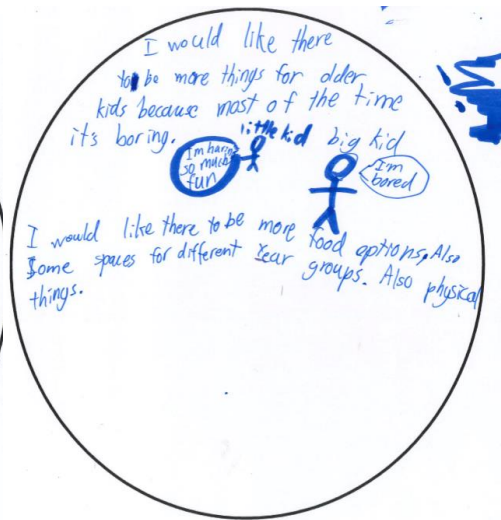 I would like there
to be more things for older
kids because most of the time
it's boring.
little kid
big kid
I'm having
so much
fun
I'm
bored
I would like there to be more food options, Also
Some spaces for different Year groups. Also physical
things.